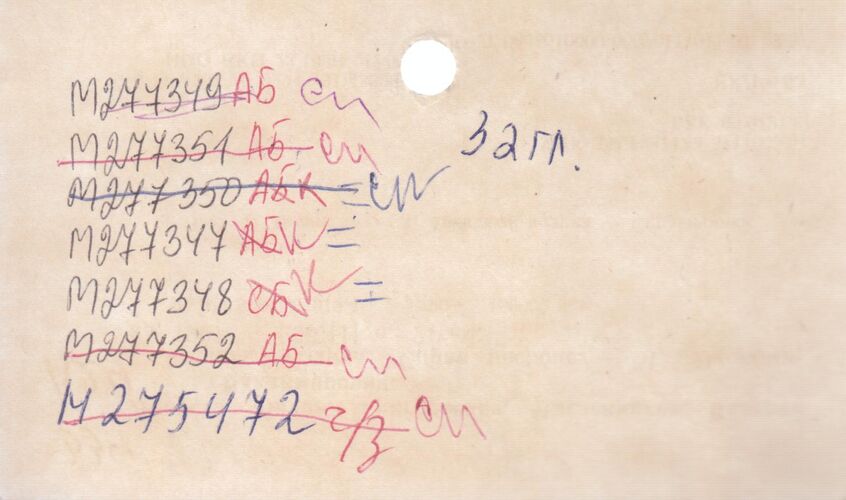 М277349 АБ сп
М277351 АБ сп
32 гл.
М277350 АБК = сп
М277347 АБК =
М277348 СБК =
М277352 АБ сп
М275472 ч/з сп